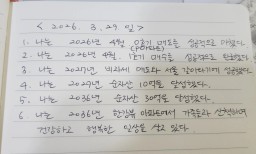 < 2026. 3. 29 일 >
1. 나는 2026년 4월 매도를 성공적으로 마쳤다.
2. 나는 2026년 4월, 1차 매수를 성공적으로
3. 나는 2027년 비과세 매도와 서울 갈아타기에 성공했다.
4. 나는 2029년 순자산 10억을 달성했다.
5. 나는 2036년 순자산 30억을 달성했다.
6. 나는 2036년 한강뷰 아파트에서 가족들과 산책하며
건강하고 행복한 일상을 살고 있다.